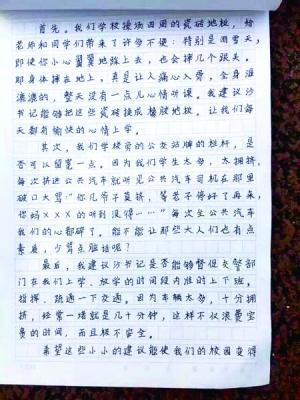 首先。我们学校操场四周的瓷砖地板，给
老师和同学们带来了许多不便：特别是雨雪天，
即使你小心翼翼地踏上去，也会摔几个跟头。
那身体摔在地上，真是让人痛心入骨，全身湿
漉漉的，整天没有一点儿心情听课。我建议沙
书记能够把这些瓷砖换成橡胶地板。让我们每
天都有愉快的心情上学。
其次，我们学校旁的公交站牌的栏杆，是
否可以留宽一点。因为我们学生太多，太拥挤，
每次挤进公共汽车就听见公共汽车司机在那里
破口大骂“你几爷子莫挤，等老子停好了再来，
你妈×××的听到没得……”每次坐公共汽车
我们的心都碎了。能不能让那些大人们也有点
素质，少骂点脏话呢？
最后，我建议沙书记是否能够督促交警部
门在我们上学、放学的时间段内准时上下班，
指挥、疏通一下交通。因为车辆太多，十分拥
挤，经常一堵就是几十分钟，这样不仅浪费宝
贵的时间，而且极不安全。
希望这些小小的建议能使我们的校园变得